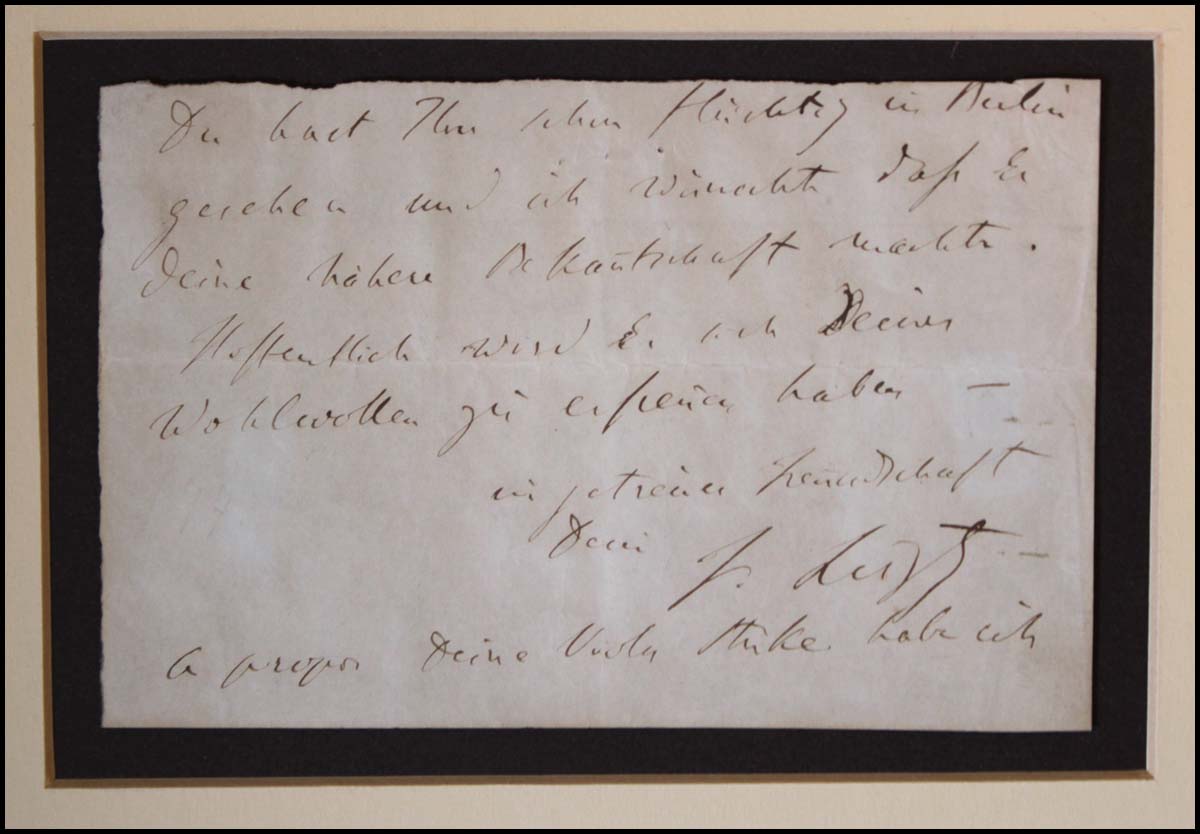 Du hast Ihn schon flüchtig in Berlin
gesehen und ich wünschte daß Er
deine nähere Bekañtschaft machte.
Hoffentlich wird Er sich Deines
Wohlwollen zu erfreuen haben —
in getreuer Freundschaft
Dein F. Liszt
a propos Deine Viola Stüke habe ich